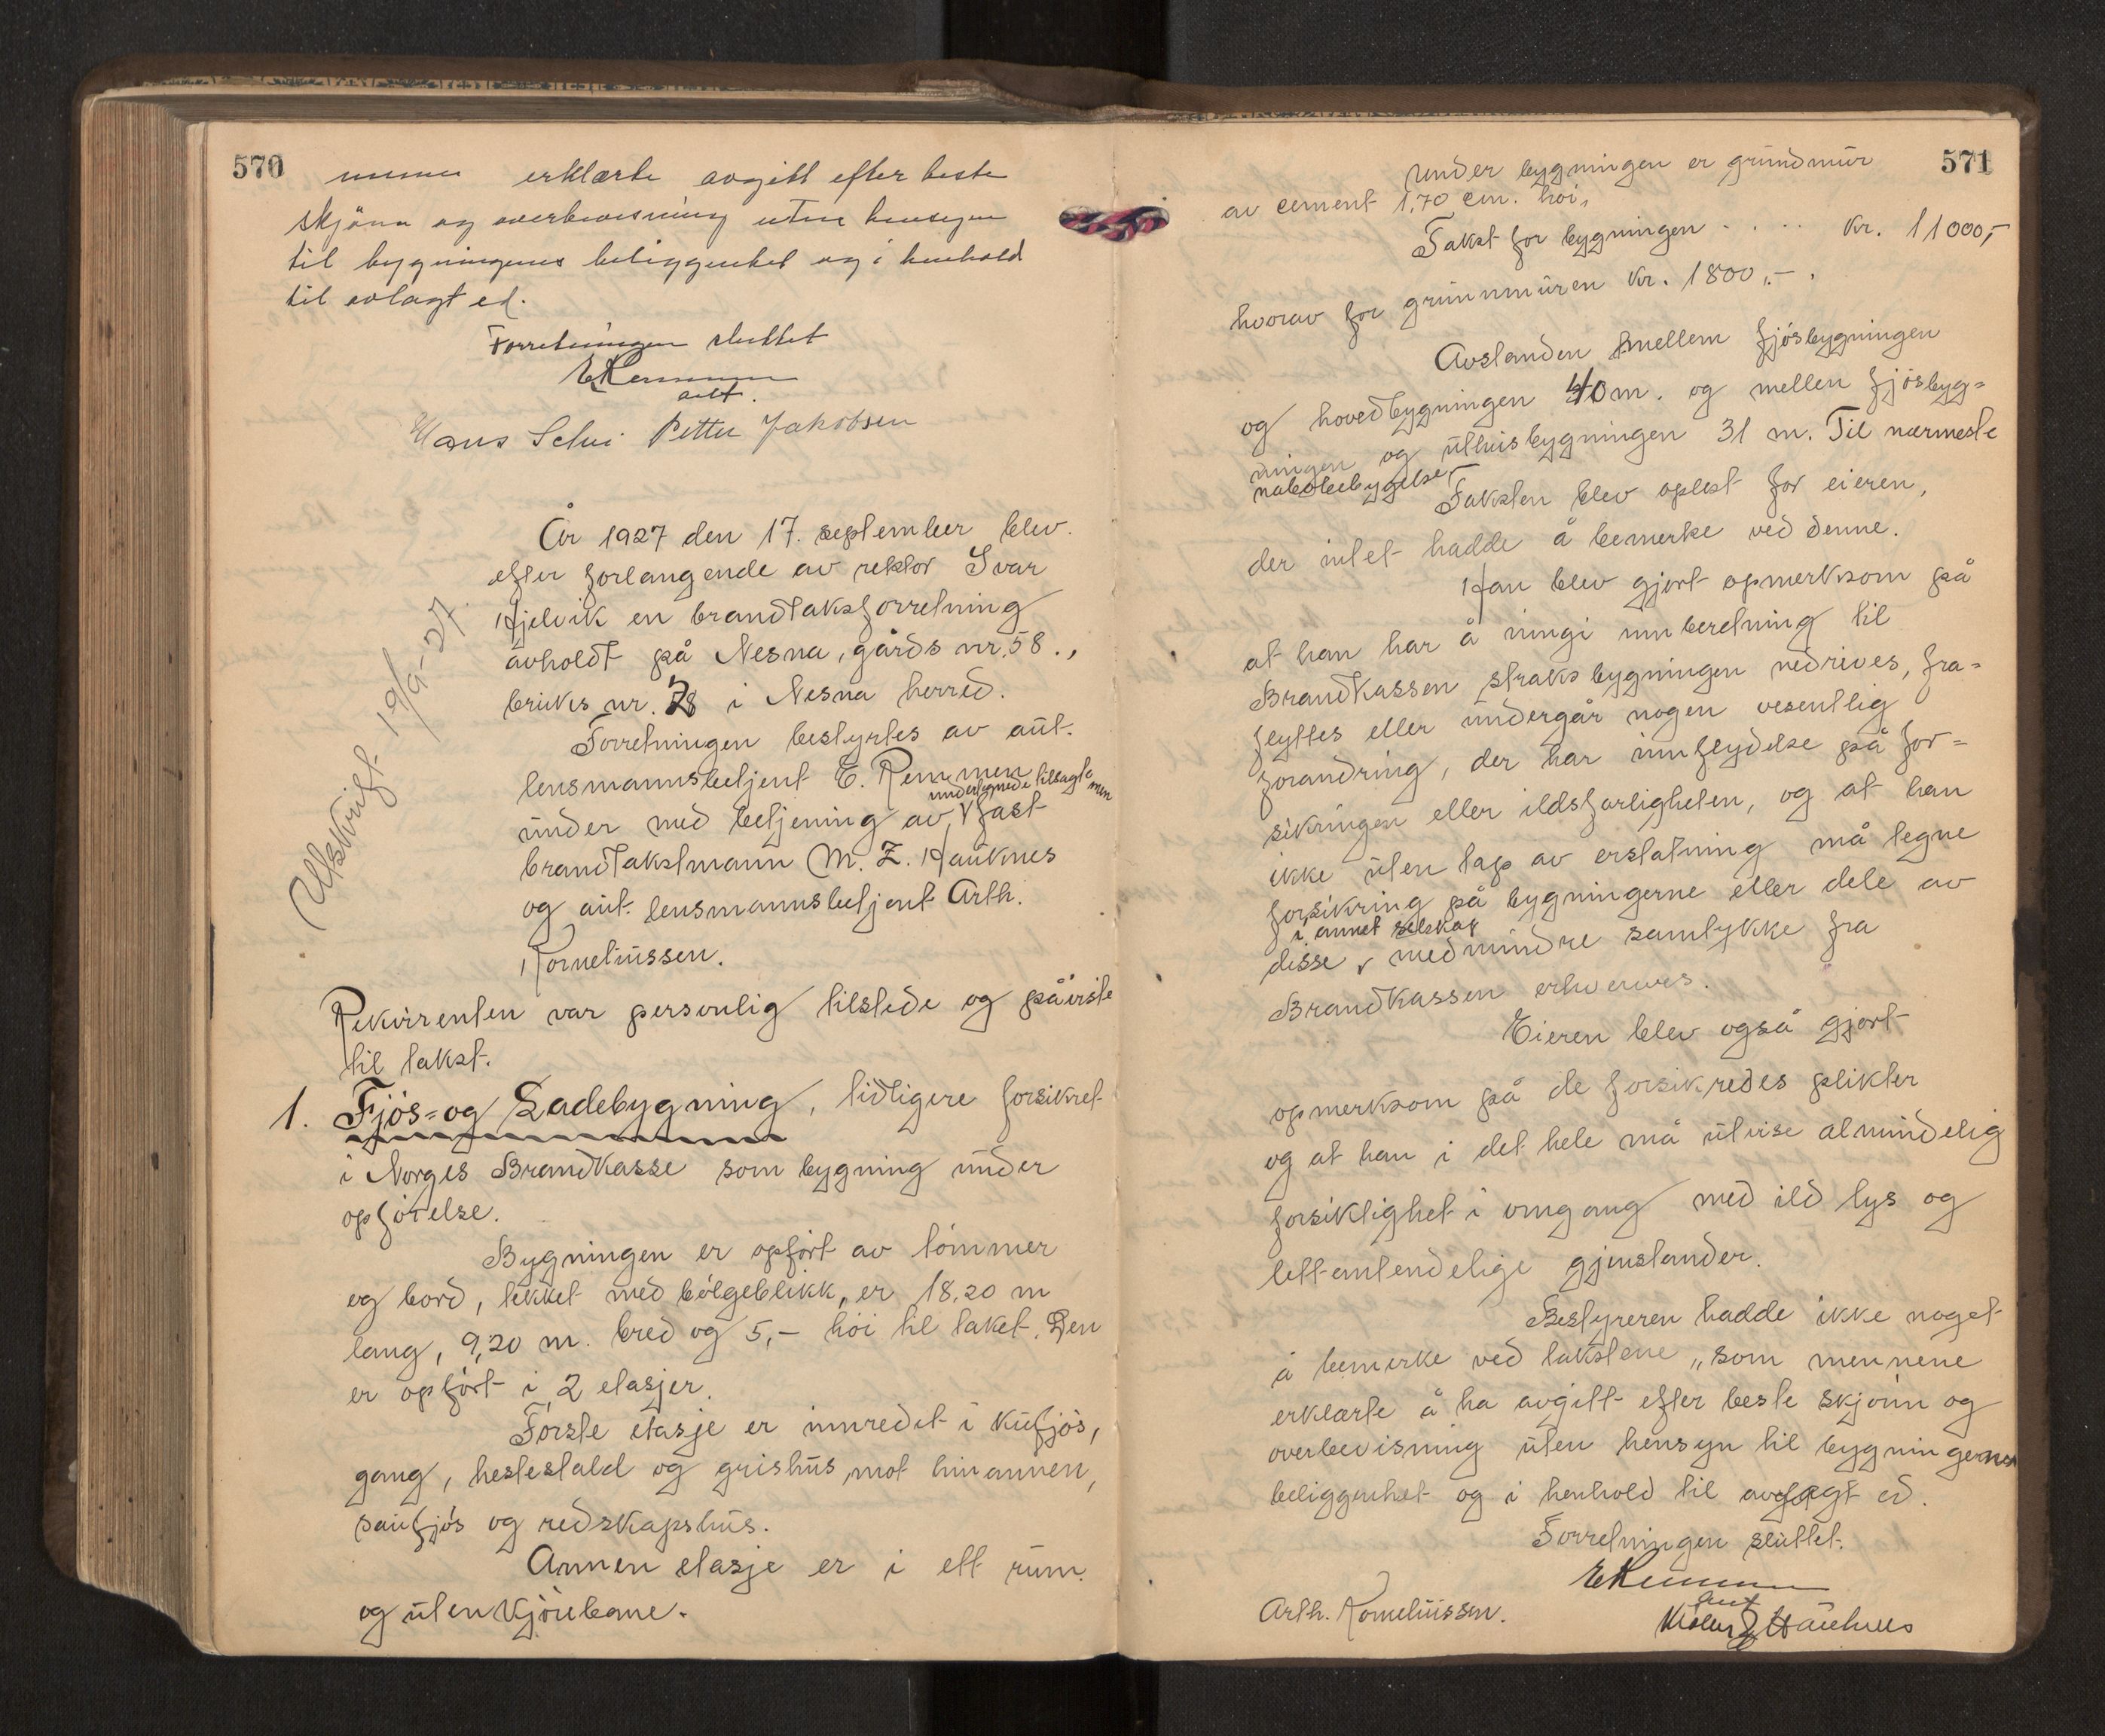 570
erklærte avgitt efter beste
skjønn og overbevisning uten hensyn
til bygningens beliggenhet og i henhold
til avlagt ed.
Forretningen sluttet
E Remmen
aut.
Hans Selvi Petter Jakobsen
År 1927 den 17. september blev
efter forlangende av rektor Ivar
Hjelvik en brandtaksforretning
avholdt på Nesna, gårds nr. 58.,
bruks nr. 78 i Nesna herred.
Utskrift 19/9-27
Forretningen bestyrtes av aut.
lensmannsbetjent E. Remmen
undertegnede tilsagte men
under med betjening av, V fast
brandtakstmann M. Z. Hauknes
og aut. lensmannsbetjent Arth.
Korneliussen.
Rekvirenten var personlig tilstede og påviste
til takst.
1. Fjøs= og Ladebygning, tidligere forsikret
i Norges Brandkasse som bygning under
opførelse.
Bygningen er opført av tømmer
og bord, tekket med bølgeblikk, er 18,20 m
lang, 9,20 m. bred og 5,- høi til taket. Den
er opført i 2 etasjer.
Første etasje er innredet i kufjøs,
gang, hestestald og grishus, mot hinannen,
saufjøs og redskapshus.
Annen etasje er i ett rum.
og uten kjørebane.
571
Under bygningen er grundmur
av cement 1,70 cm. høi,
Takst for bygningen . . . . Kr. 11000,-
hvorav for grunnmuren Kr. 1800,-.
Avstanden mellem fjøsbygningen
og hovedbygningen 40 m. og mellen fjøsbyg=
ningen og uthusbygningen 31 m. Til nærmeste
nabobebygelse -
Taksten blev oplest for eieren,
der intet hadde å bemerke ved denne.
Han blev gjort opmerksom på
at han har å inngi innberetning til
Brandkassen straks bygningen nedrives, fra=
flyttes eller undergår nogen vesentlig
forandring, der har innflydelse på for=
sikringen eller ildsfarligheten, og at han
ikke uten tap av erstatning må tegne
forsikring på bygningerne eller dele av
i annet selskap
disse V medmindre samtykke fra
Brandkassen erhverves.
Eieren blev også gjort
opmerksom på de forsikredes plikter
og at han i det hele må utvise almindelig
forsiktighet i omgang med ild lys og
lettantendelige gjenstander.
Bestyreren hadde ikke noget
å bemerke ved takstene, som mennene
erklærte å ha avgitt efter beste skjønn og
overbevisning uten hensyn til bygningernes
beliggenhet og i henhold til avlagt ed.
Forretningen sluttet.
E Remmen
aut
Arth. Korneliussen.
Z Hauknes